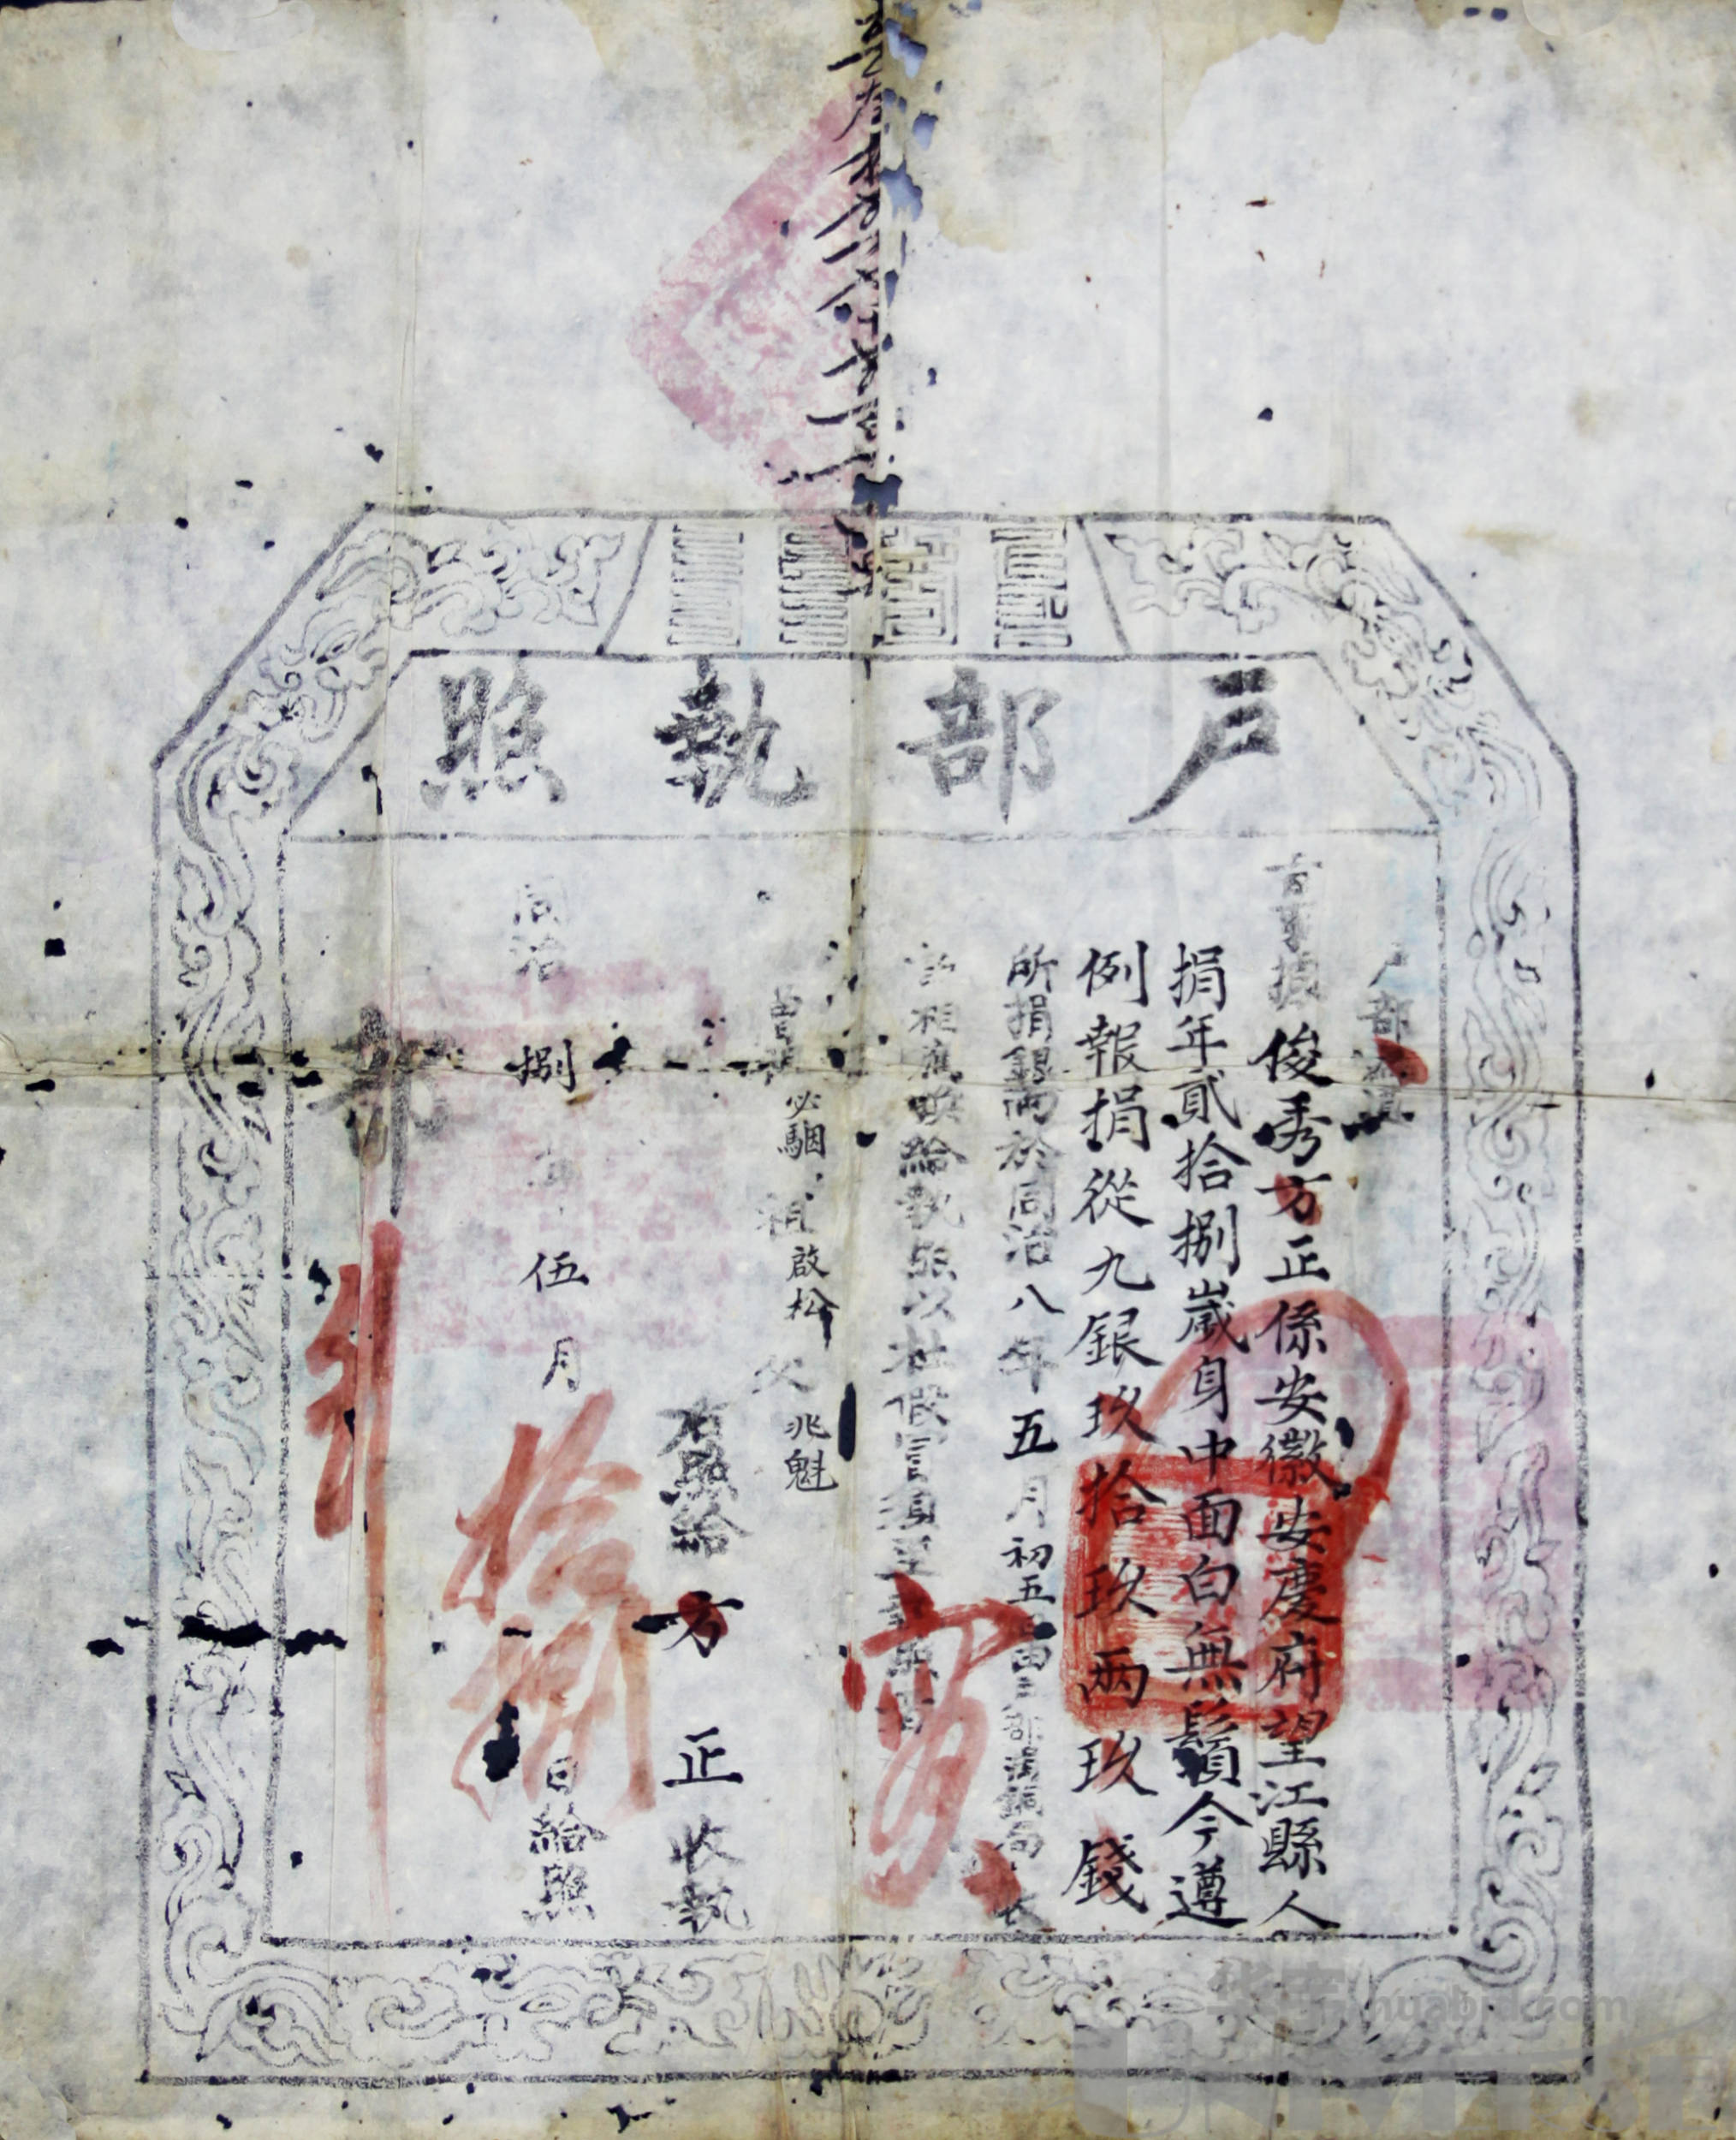 戶部執照
戶部為
俊秀方正係安徽安慶府望江縣人
捐年貳拾捌歲身中面白無鬚今遵
例報捐從九銀玖拾玖兩玖錢
所捐銀兩於同治八年五月初五日由戶部捐銅局
相應換給執照以杜假冒須至執照者
實
曾祖必駰祖啟松父兆魁
右照給方正收執
同治捌年伍月拾捌日給照
部
行
华宝 huabid.com